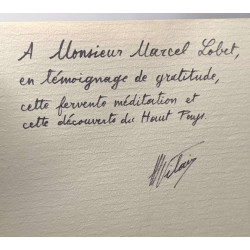 A Monsieur Marcel Lobet,
en témoignage de gratitude,
cette fervente méditation et
cette découverte du Haut Pays.